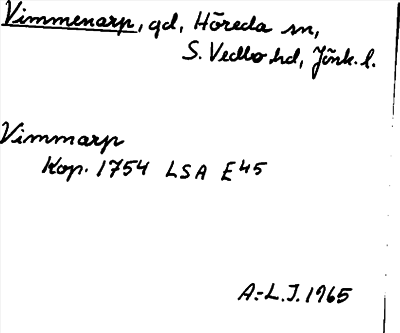 Vimmenarp, gd, Höreda sn,
S. Vedbo hd, Jönk. l.
Vimmarp
Kop. 1754 LSA E45
A.-L.J. 1965